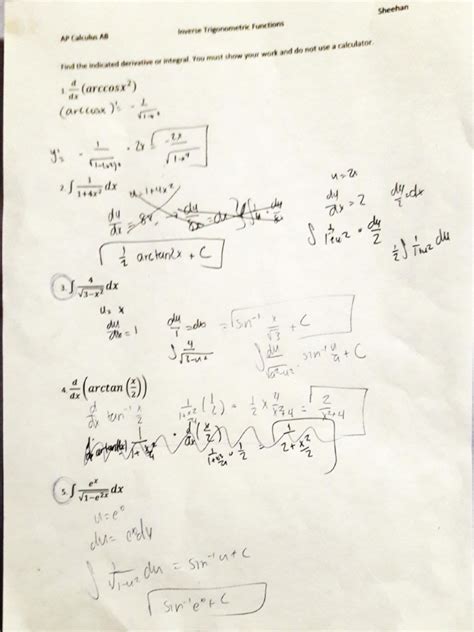 Sheehan
AP Calculus AB
Inverse Trigonometric Functions
Find the indicated derivative or integral. You must show your work and do not use a calculator.
1. d/dx (arccosx²)
(arccosx)' = - 1/√1-x²
y' = - 1/√1-(x²)² · 2x = -2x/√1-x⁴
2. ∫ 1/(1+4x²) dx
u = 1+4x²
du/dx = 8x
u = 2x
du/dx = 2
du/2 = dx
∫ 1/(1+u²) · du/2
1/2 ∫ 1/(1+u²) du
1/2 arctan2x + C
3. ∫ 4/√3-x² dx
u = x
du/dx = 1
du/1 = dx
∫ 4/√3-u²
= sin⁻¹ x/√3 + C
∫ du/√a²-u² = sin⁻¹ u/a + C
4. d/dx (arctan (x/2))
d/dx tan⁻¹ x/2
1/2 × 4/x²+4 = 2/x²+4
5. ∫ eˣ/√1-e²ˣ dx
u = eˣ
du = eˣdx
∫ 1/√1-u² du = sin⁻¹u + C
sin⁻¹eˣ + C